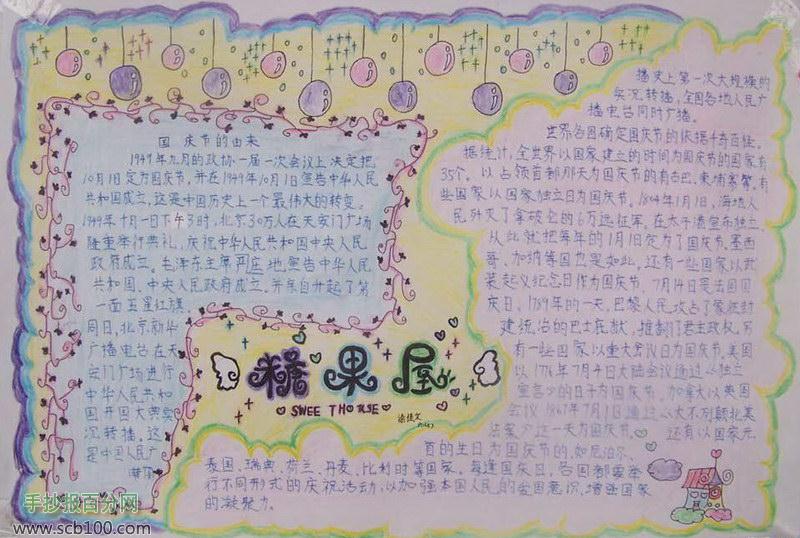 国庆节的由来
1949年九月的政协一届一次会议上决定把
10月1日定为国庆节,并在1949年10月1日宣告中华人民
共和国成立,这是中国历史上一个最伟大的转变。
1949年十月一日下午3时,北京30万人在天安门广场
隆重举行典礼,庆祝中华人民共和国中央人民
政府成立。毛泽东主席庄地宣告中华人民
共和国、中央人民政府成立,并亲自升起了第
一面五星红旗
同日,北京新华
广播电台在天
安门广场进行
中华人民共和
国开国大典实
况转播。这
是中国人民广
播史上第一次大规模的
实况转播,全国各地人民广
播电台同时广播。
世界各国确定国庆节的依据千奇百怪。
据统计,全世界以国家建立的时间为国庆节的国家有
35个。以占领首都那天为国庆节的有古巴、柬埔寨等。有
些国家以国家独立日为国庆节。1804年1月1日,海地人
民歼灭了拿破仑的6万远征军,在太子港宣布独立,
从此就把每年的1月1日定为了国庆节,墨西
哥、加纳等国也是如此。还有一些国家以武
装起义纪念日作为国庆节。7月14日是法国国
庆日,1789年的一天,巴黎人民攻占了象征封
建统治的巴士底狱,推翻了君主政权。另
有一些国家以重大会议日为国庆节。美国
以1776年7月4日大陆会议通过《独立
宣言》的日子为国庆节。加拿大以英国
会议1867年7月1日通过《大不列颠北美
法案》这一天为国庆节。
还有以国家元
首的生日为国庆节的,如尼泊尔、
泰国、瑞典、荷兰、丹麦、比利时等国家。每逢国庆日,各国都要举
行不同形式的庆祝活动,以加强本国人民的爱国意识,增强国家
的凝聚力。
糖果屋
SWEE THOUSE
手抄报百分网
www.scb100.com